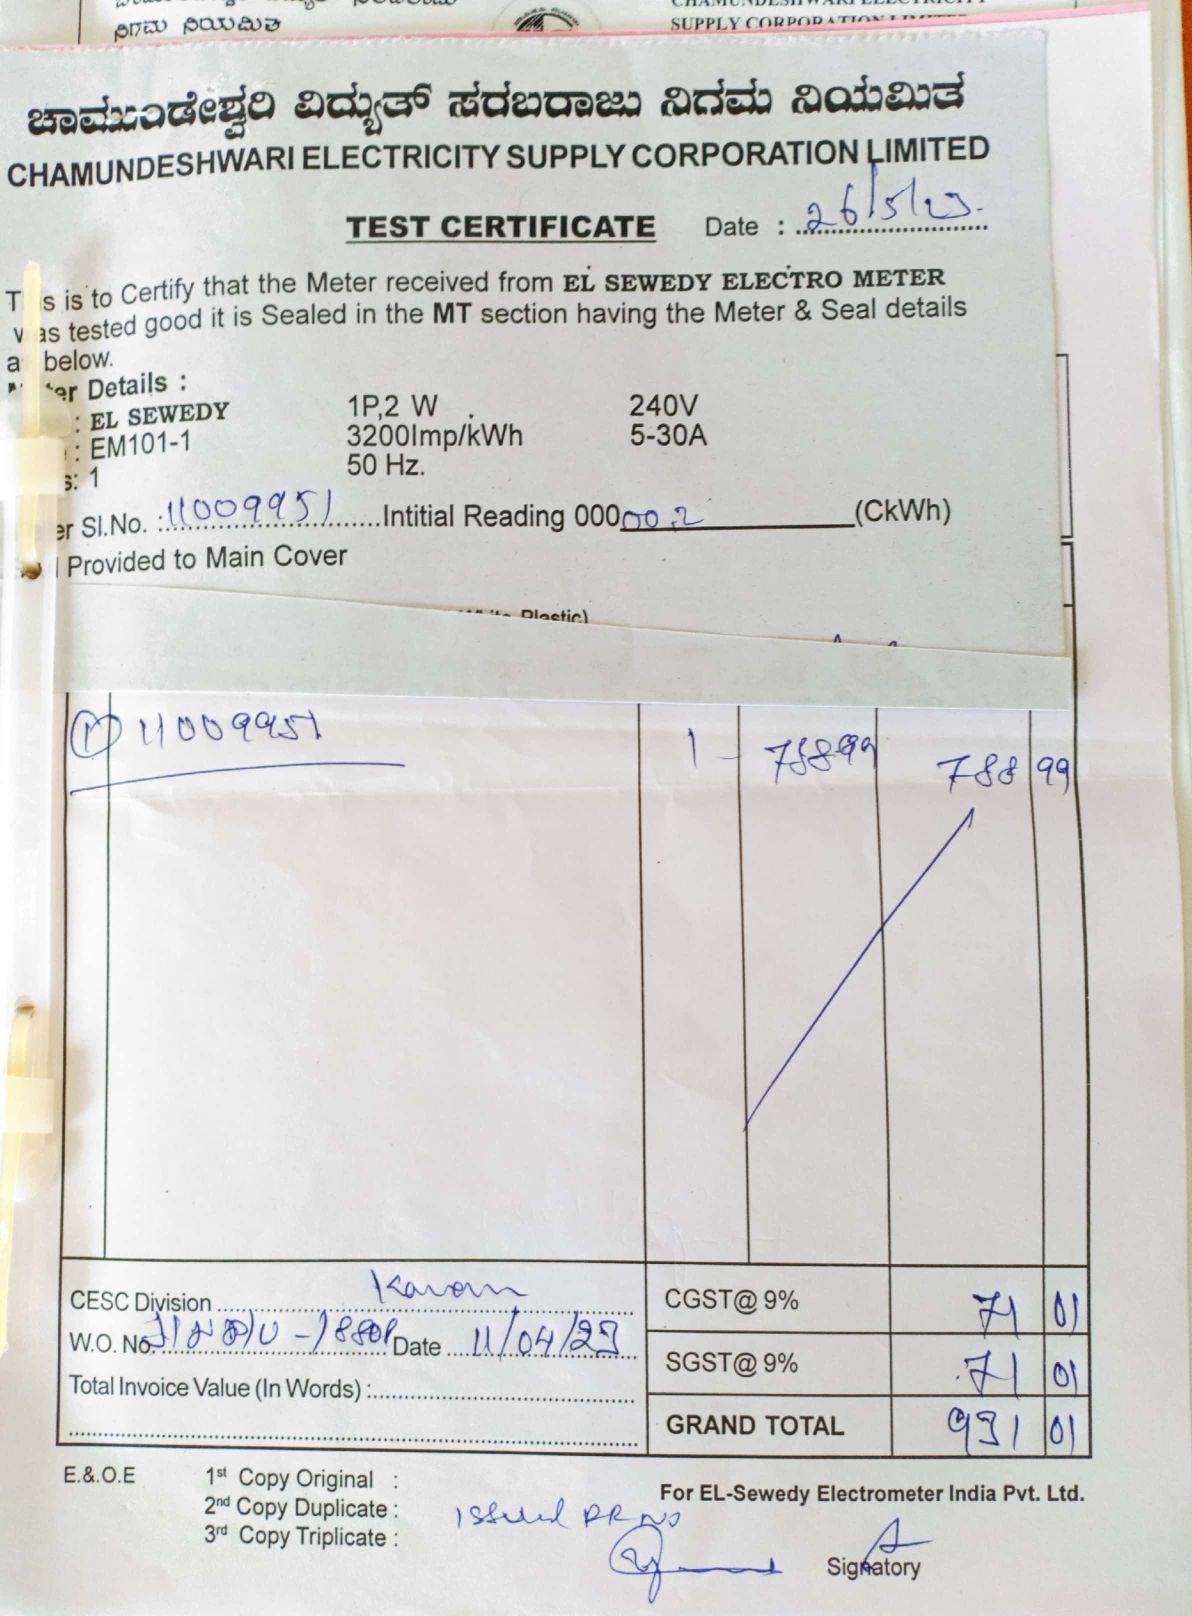 ನಿಗಮ ನಿಯಮಿತ
SUPPLY CORPORATION LIMITED
ಚಾಮುಂಡೇಶ್ವರಿ ವಿದ್ಯುತ್ ಸರಬರಾಜು ನಿಗಮ ನಿಯಮಿತ
CHAMUNDESHWARI ELECTRICITY SUPPLY CORPORATION LIMITED
TEST CERTIFICATE Date : 26/5/23.
This is to Certify that the Meter received from EL SEWEDY ELECTRO METER
was tested good it is Sealed in the MT section having the Meter & Seal details
as below.
Meter Details :
: EL SEWEDY 1P,2 W 240V
: EM101-1 3200Imp/kWh 5-30A
s: 1 50 Hz.
er Sl.No. : 11009951 Intitial Reading 00000.2 (CkWh)
Provided to Main Cover
Plastic)
1) 11009951 1 - 788 99 788 99
CESC Division
CGST@ 9% 71 01
W.O. No. Date 11/04/23
SGST@ 9% 71 01
Total Invoice Value (In Words) :
GRAND TOTAL 931 01
E.&.O.E 1st Copy Original :
2nd Copy Duplicate :
3rd Copy Triplicate :
For EL-Sewedy Electrometer India Pvt. Ltd.
Issued RR No
Signatory